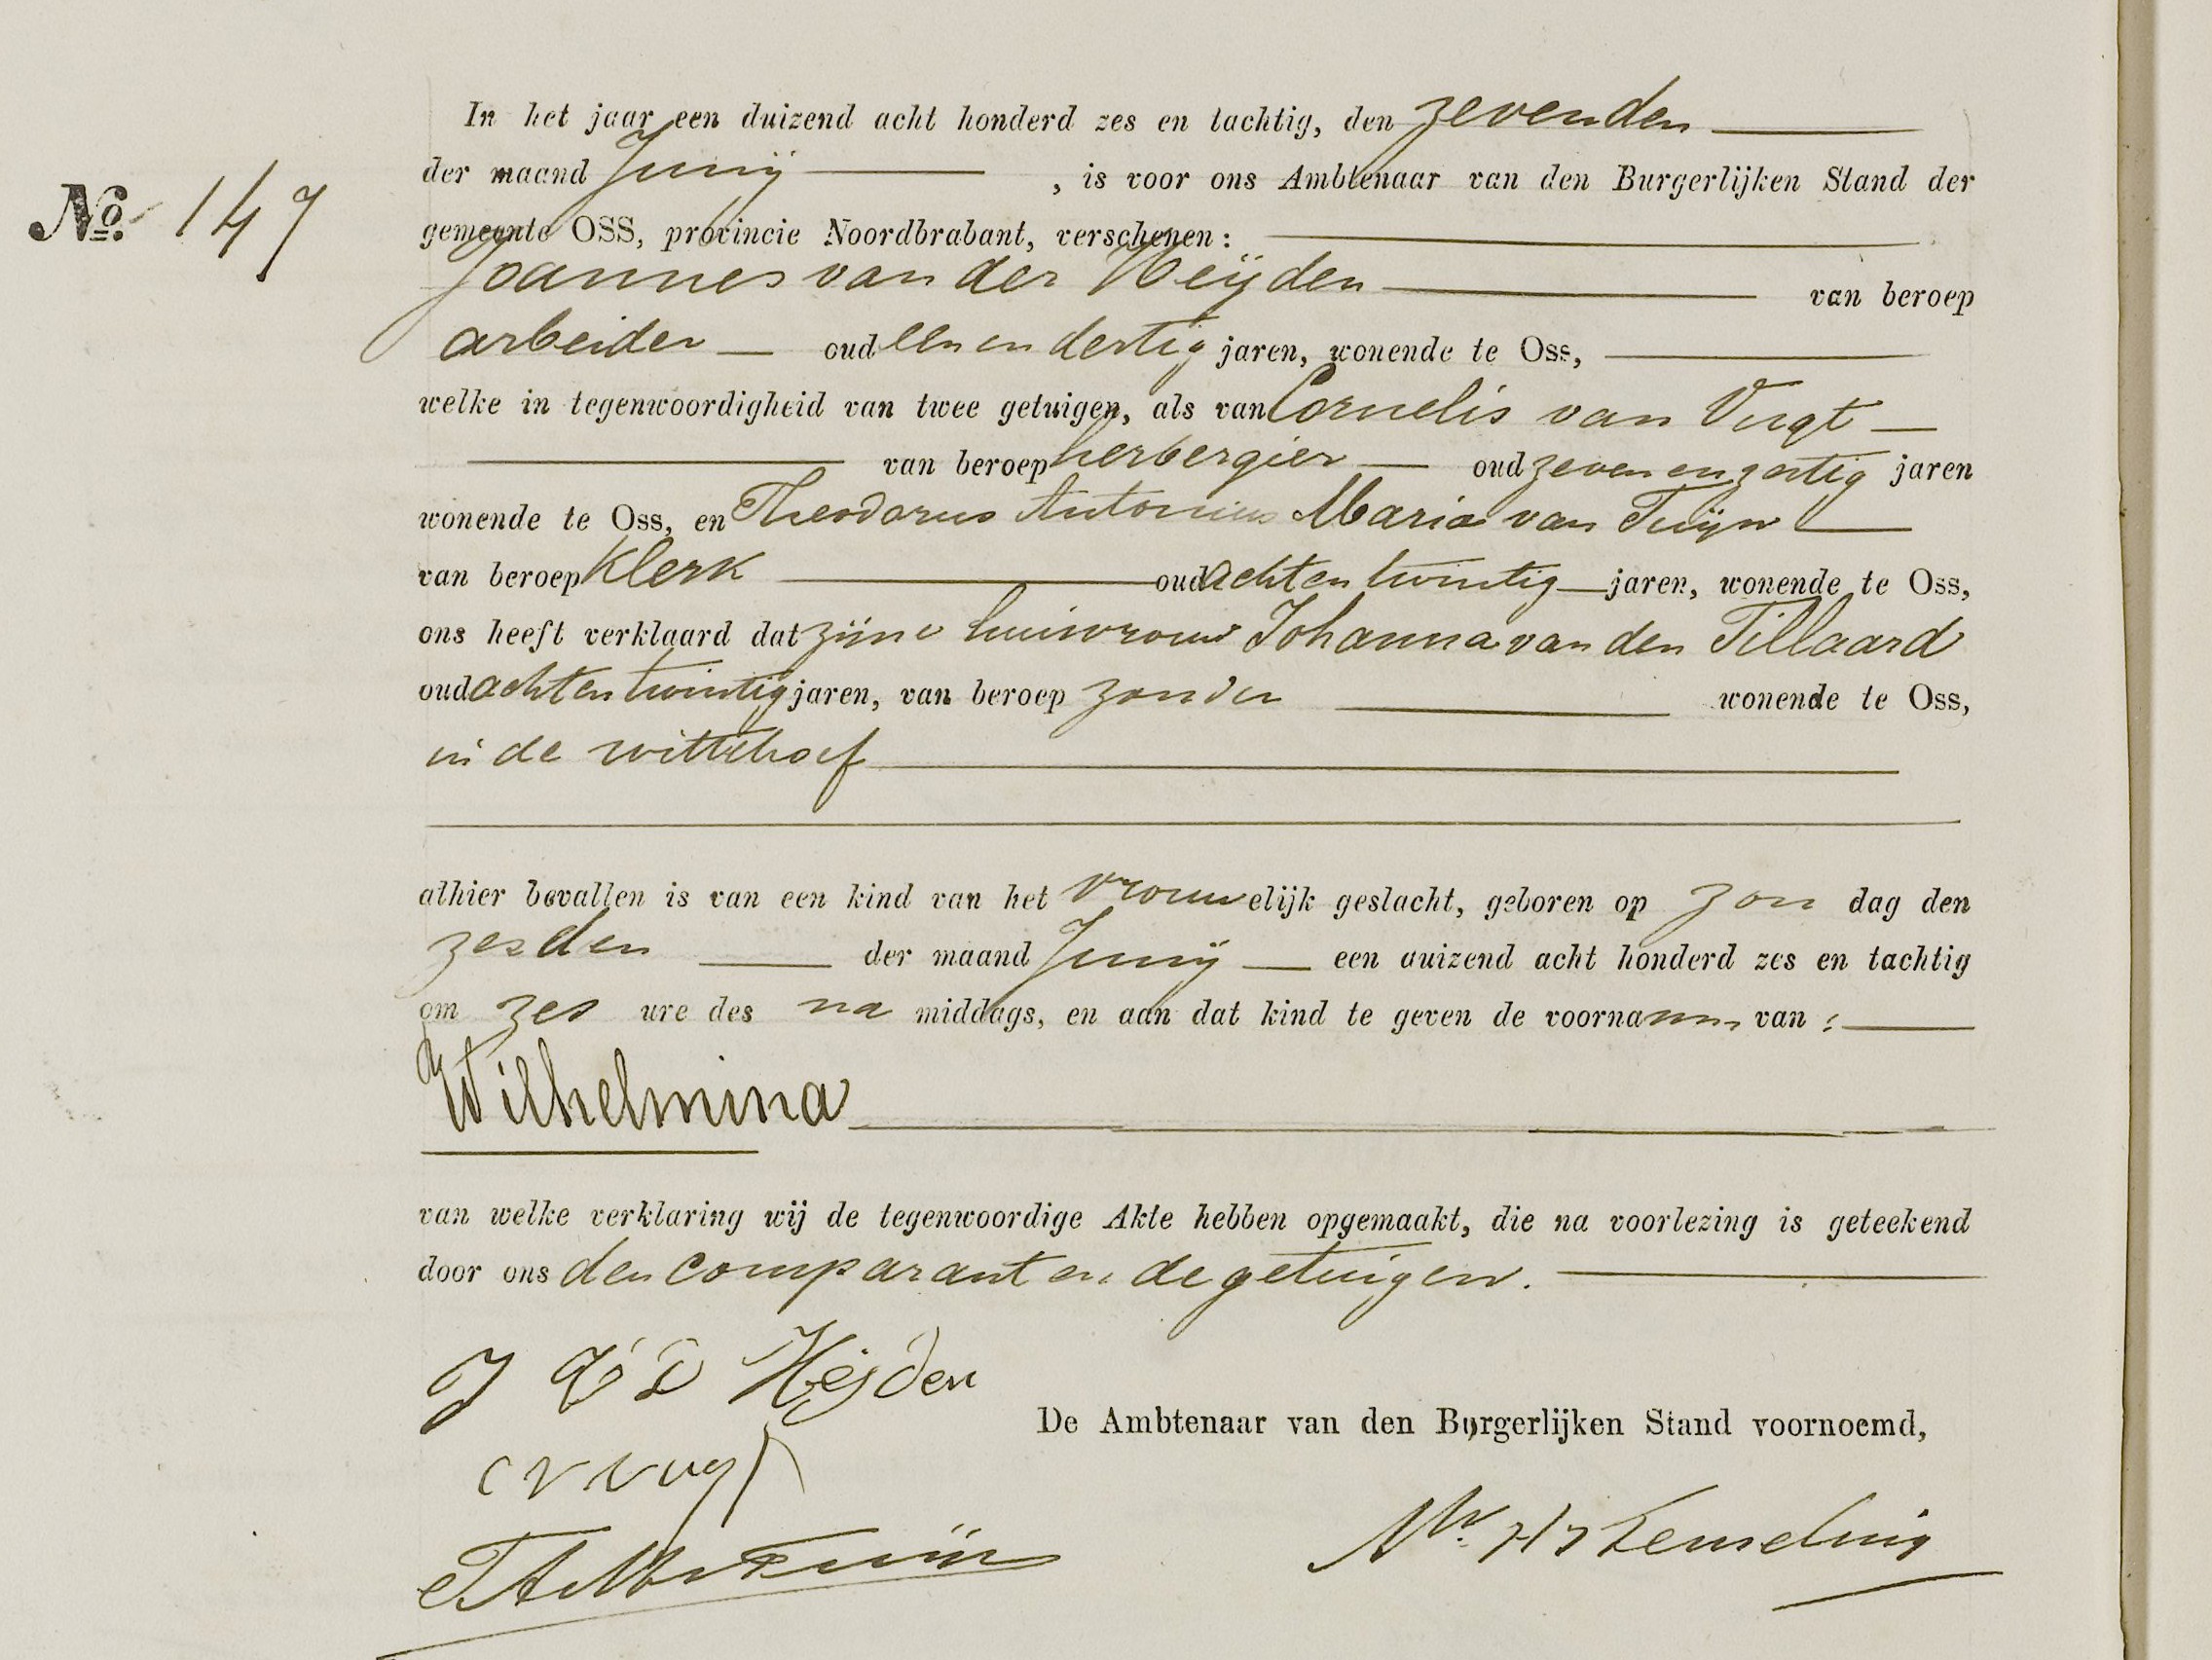 No. 147
In het jaar een duizend acht honderd zes en tachtig, den zevenden
der maand Junij, is voor ons Ambtenaar van den Burgerlijken Stand der
gemeente OSS, provincie Noordbrabant, verschenen:
Joannes van der Heijden van beroep
arbeider oud een en dertig jaren, wonende te Oss,
welke in tegenwoordigheid van twee getuigen, als van Cornelis van Vugt
van beroep herbergier oud zeven en zestig jaren
wonende te Oss, en Theodorus Antonius Maria van Tuijn
van beroep Klerk oud acht en twintig jaren, wonende te Oss,
ons heeft verklaard dat zijne huisvrouw Johanna van den Tillaard
oud acht en twintig jaren, van beroep zonder wonende te Oss,
in de wittehoef
alhier bevallen is van een kind van het vrouwelijk geslacht, geboren op zon dag den
zesden der maand Junij een duizend acht honderd zes en tachtig
om zes ure des na middags, en aan dat kind te geven de voornamen van :
Wilhelmina
van welke verklaring wij de tegenwoordige Akte hebben opgemaakt, die na voorlezing is geteekend
door ons den comparant en de getuigen.
J v d Heijden
De Ambtenaar van den Burgerlijken Stand voornoemd,
C v Vugt
TAM v Tuijn
Mr.